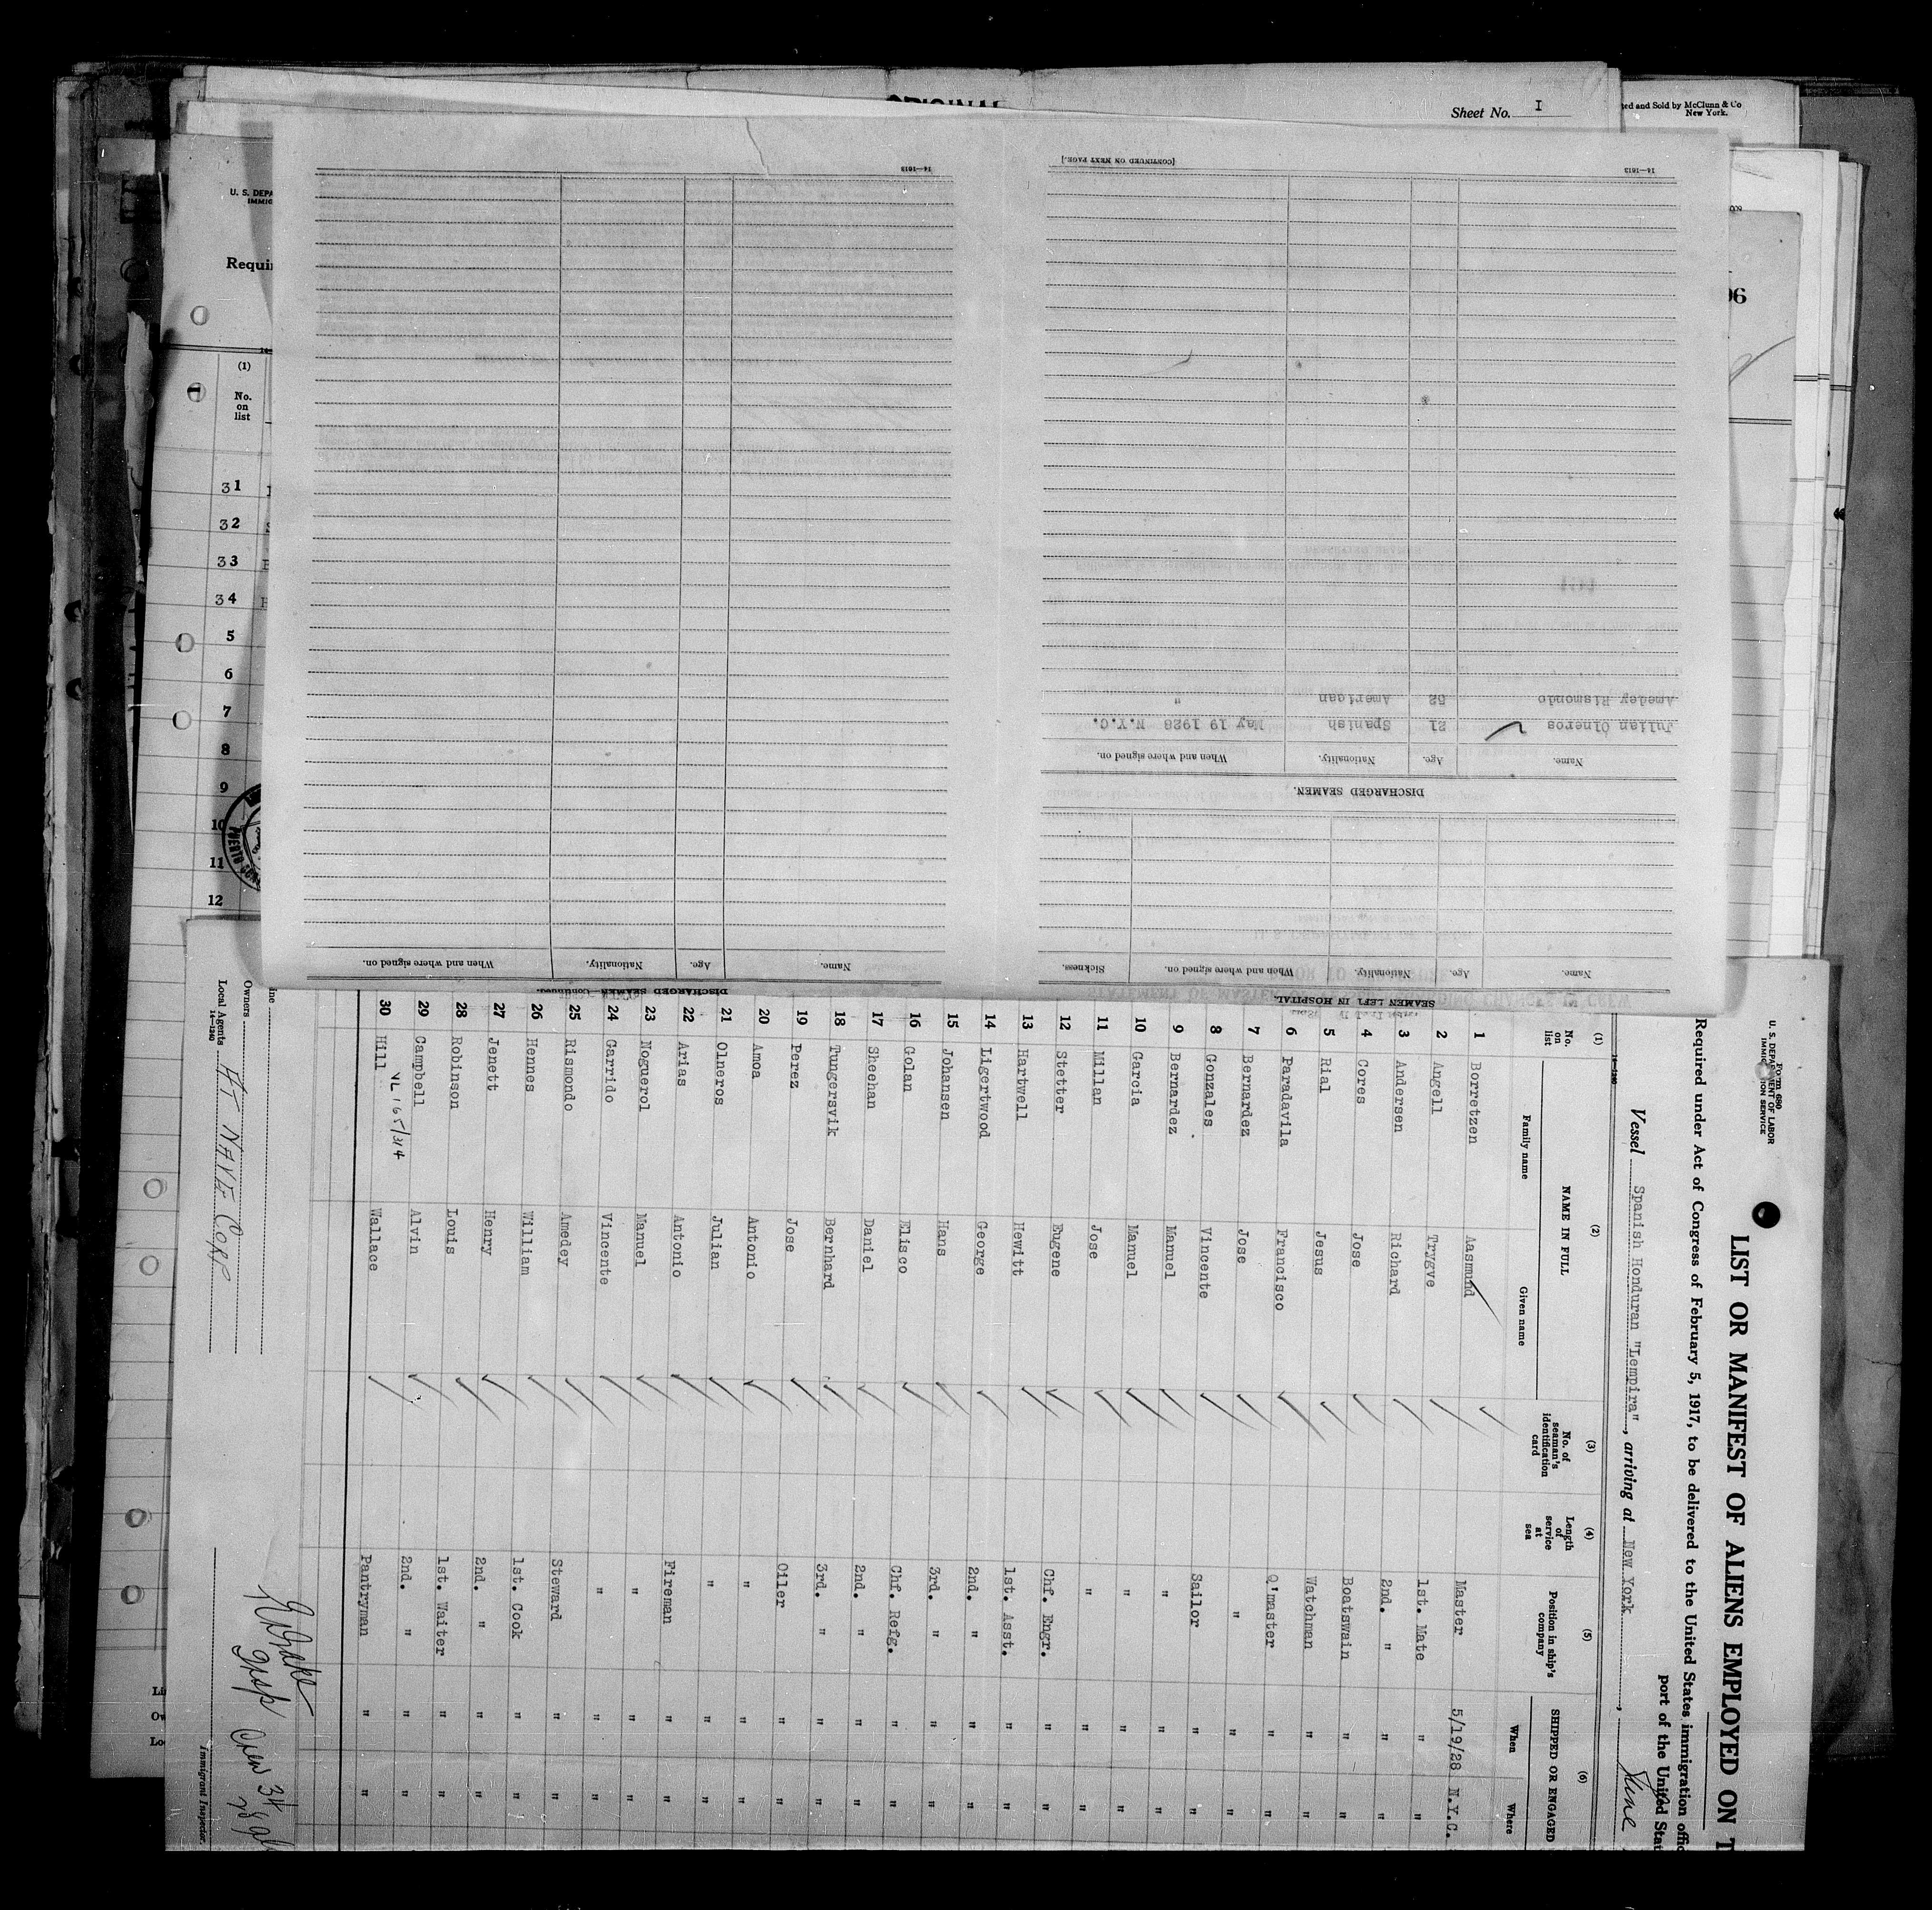 ORIGINAL
Sheet No. I
ted and Sold by McClunn & Co
New York.
U. S. DEPA
IMMIG
Requi
(1)
No.
on
list
31
32
33
34
5
6
7
8
9
10
11
12
SEAMEN LEFT IN HOSPITAL.
Name. Age. Nationality. When and where signed on. Sickness.
DISCHARGED SEAMEN.
Name. Age. Nationality. When and where signed on.
Julian Olneros 21 Spanish May 19 1928 N.Y.C.
Amedey Rismondo 52 American "
14—1613
[CONTINUED ON NEXT PAGE.]
DISCHARGED SEAMEN—Continued.
Name. Age. Nationality. When and where signed on.
14—1613
Form 680
U. S. DEPARTMENT OF LABOR
IMMIGRATION SERVICE
LIST OR MANIFEST OF ALIENS EMPLOYED ON T
Required under Act of Congress of February 5, 1917, to be delivered to the United States immigration offic
port of the United Stat
Vessel Spanish Honduran "Lempira", arriving at New York, June
(1) (2) (3) (4) (5) (6)
No. on list NAME IN FULL No. of seaman's identification card Length of service at sea Position in ship's company SHIPPED OR ENGAGED
Family name Given name When Where
1 Borretzen Aasmund Master 5/19/28 N.Y.C.
2 Angell Trygve 1st. Mate " "
3 Andersen Richard 2nd. " " "
4 Cores Jose Boatswain " "
5 Rial Jesus Watchman " "
6 Paradavila Francisco Q'master " "
7 Bernardez Jose " " "
8 Gonzales Vincente Sailor " "
9 Bernardez Manuel " " "
10 Garcia Manuel " " "
11 Millan Jose " " "
12 Stetter Eugene Chf. Engr. " "
13 Hartwell Hewitt 1st. Asst. " "
14 Ligertwood George 2nd. " " "
15 Johansen Hans 3rd. " " "
16 Golan Elisco Chf. Refg. " "
17 Sheehan Daniel 2nd. " " "
18 Tungersvik Bernhard 3rd. " " "
19 Perez Jose Oiler " "
20 Amoa Antonio " " "
21 Olneros Julian " " "
22 Arias Antonio Fireman " "
23 Noguerol Manuel " " "
24 Garrido Vincente " " "
25 Rismondo Amedey Steward " "
26 Hennes William 1st. Cook " "
27 Jenett Henry 2nd. " " "
28 Robinson Louis 1st. Waiter " "
29 Campbell Alvin 2nd. " " "
VL 165/314
30 Hill Wallace Pantryman " "
Owners
Local Agents
14—1240
NAVE CORP
Crew 34
Immigrant Inspector.